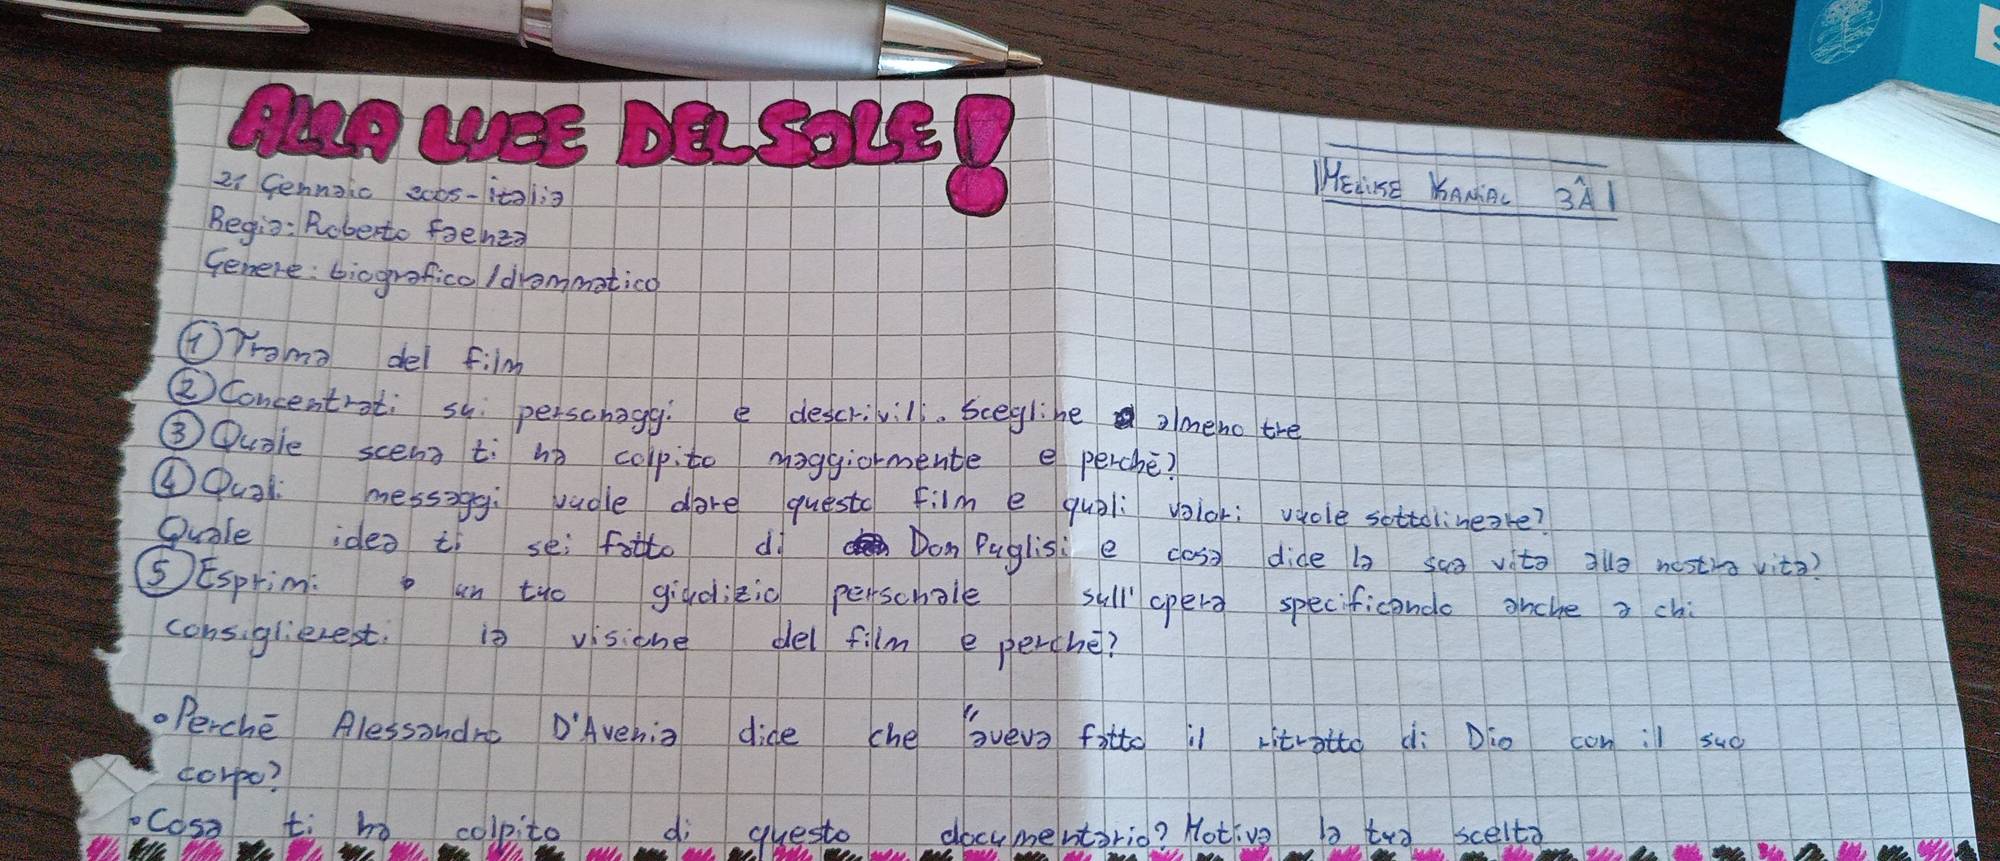 ALLA LUCE DEL SOLE!
21 Gennaio 2005-italia
MELIKE KANIAL 3^A
Regia: Roberto faenza
Genere: biografico/drammatico
① Trama del film
② Concentrati sui personaggi e descrivili. Scegline almeno tre
③ Quale scena ti ha colpito maggiormente e perchē?
④ Quali messaggi vuole dare questo film e quali valori vuole sottolineare?
Quale idea ti sei fatto di Don Puglisi e cosa dice la sua vita alla nostra vita?
⑤ Esprimi un tuo giudizio personale sull'opera specificando anche a chi
consiglieresti la visione del film e perchē?
•Perchē Alessandro D'Avenia dice che "aveva fatto il ritratto di Dio con il suo
corpo?
•Cosa ti ha colpito di questo documentario? Motiva la tua scelta